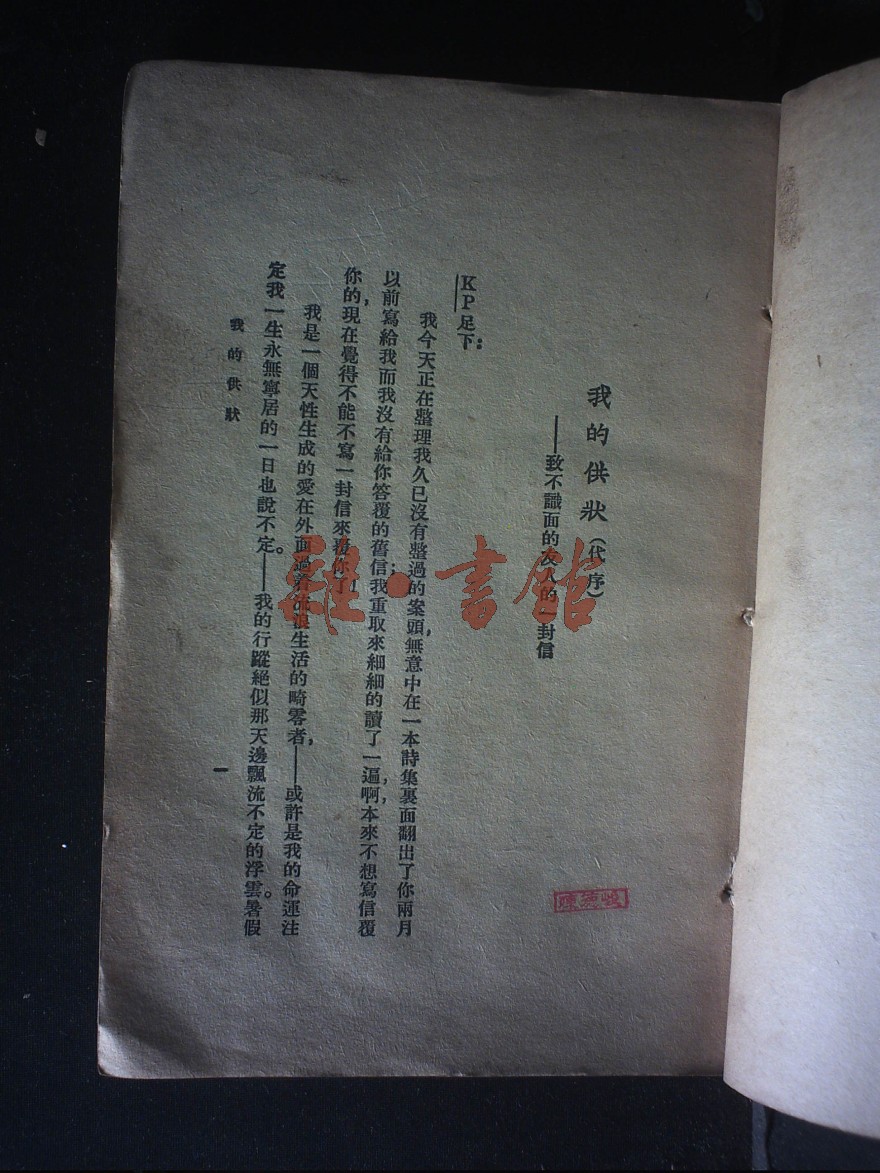 我的供狀(代序)
——致不識面的友人的 封信
KP足下:
我今天正在整理我久已沒有整過的案頭,無意中在一本詩集裏面翻出了你兩月
以前寫給我而我沒有給你答覆的舊信;我重取來細細的讀了一遍,啊,本來不想寫信覆
你的,現在覺得不能不寫一封信來覆你了!
我是一個天性生成的愛在外面過着流浪生活的畸零者,——或許是我的命運注
定我一生永無寧居的一日也說不定。——我的行蹤絕似那天邊飄流不定的浮雲。暑假
我的供狀
一
書館